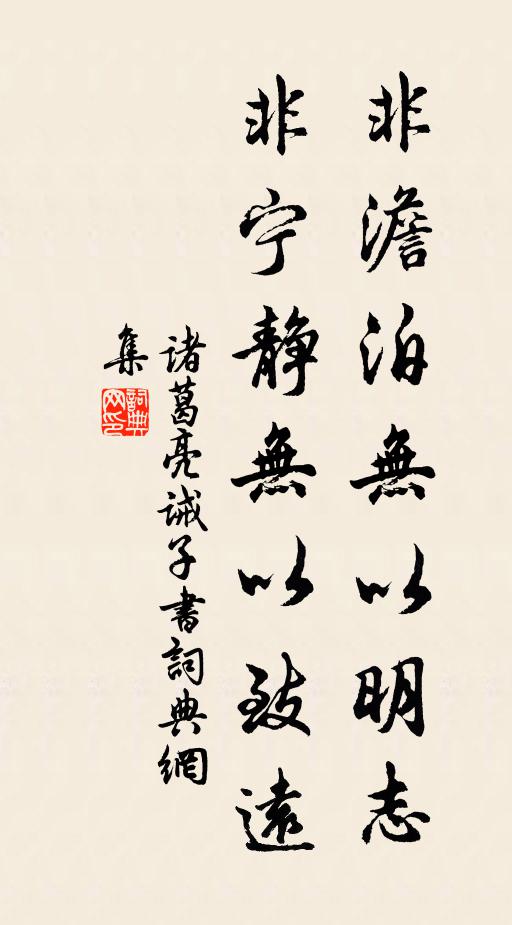 非澹泊無以明志
非宁静無以致遠
诸葛亮诫子書詞典網
集
詞典
网印